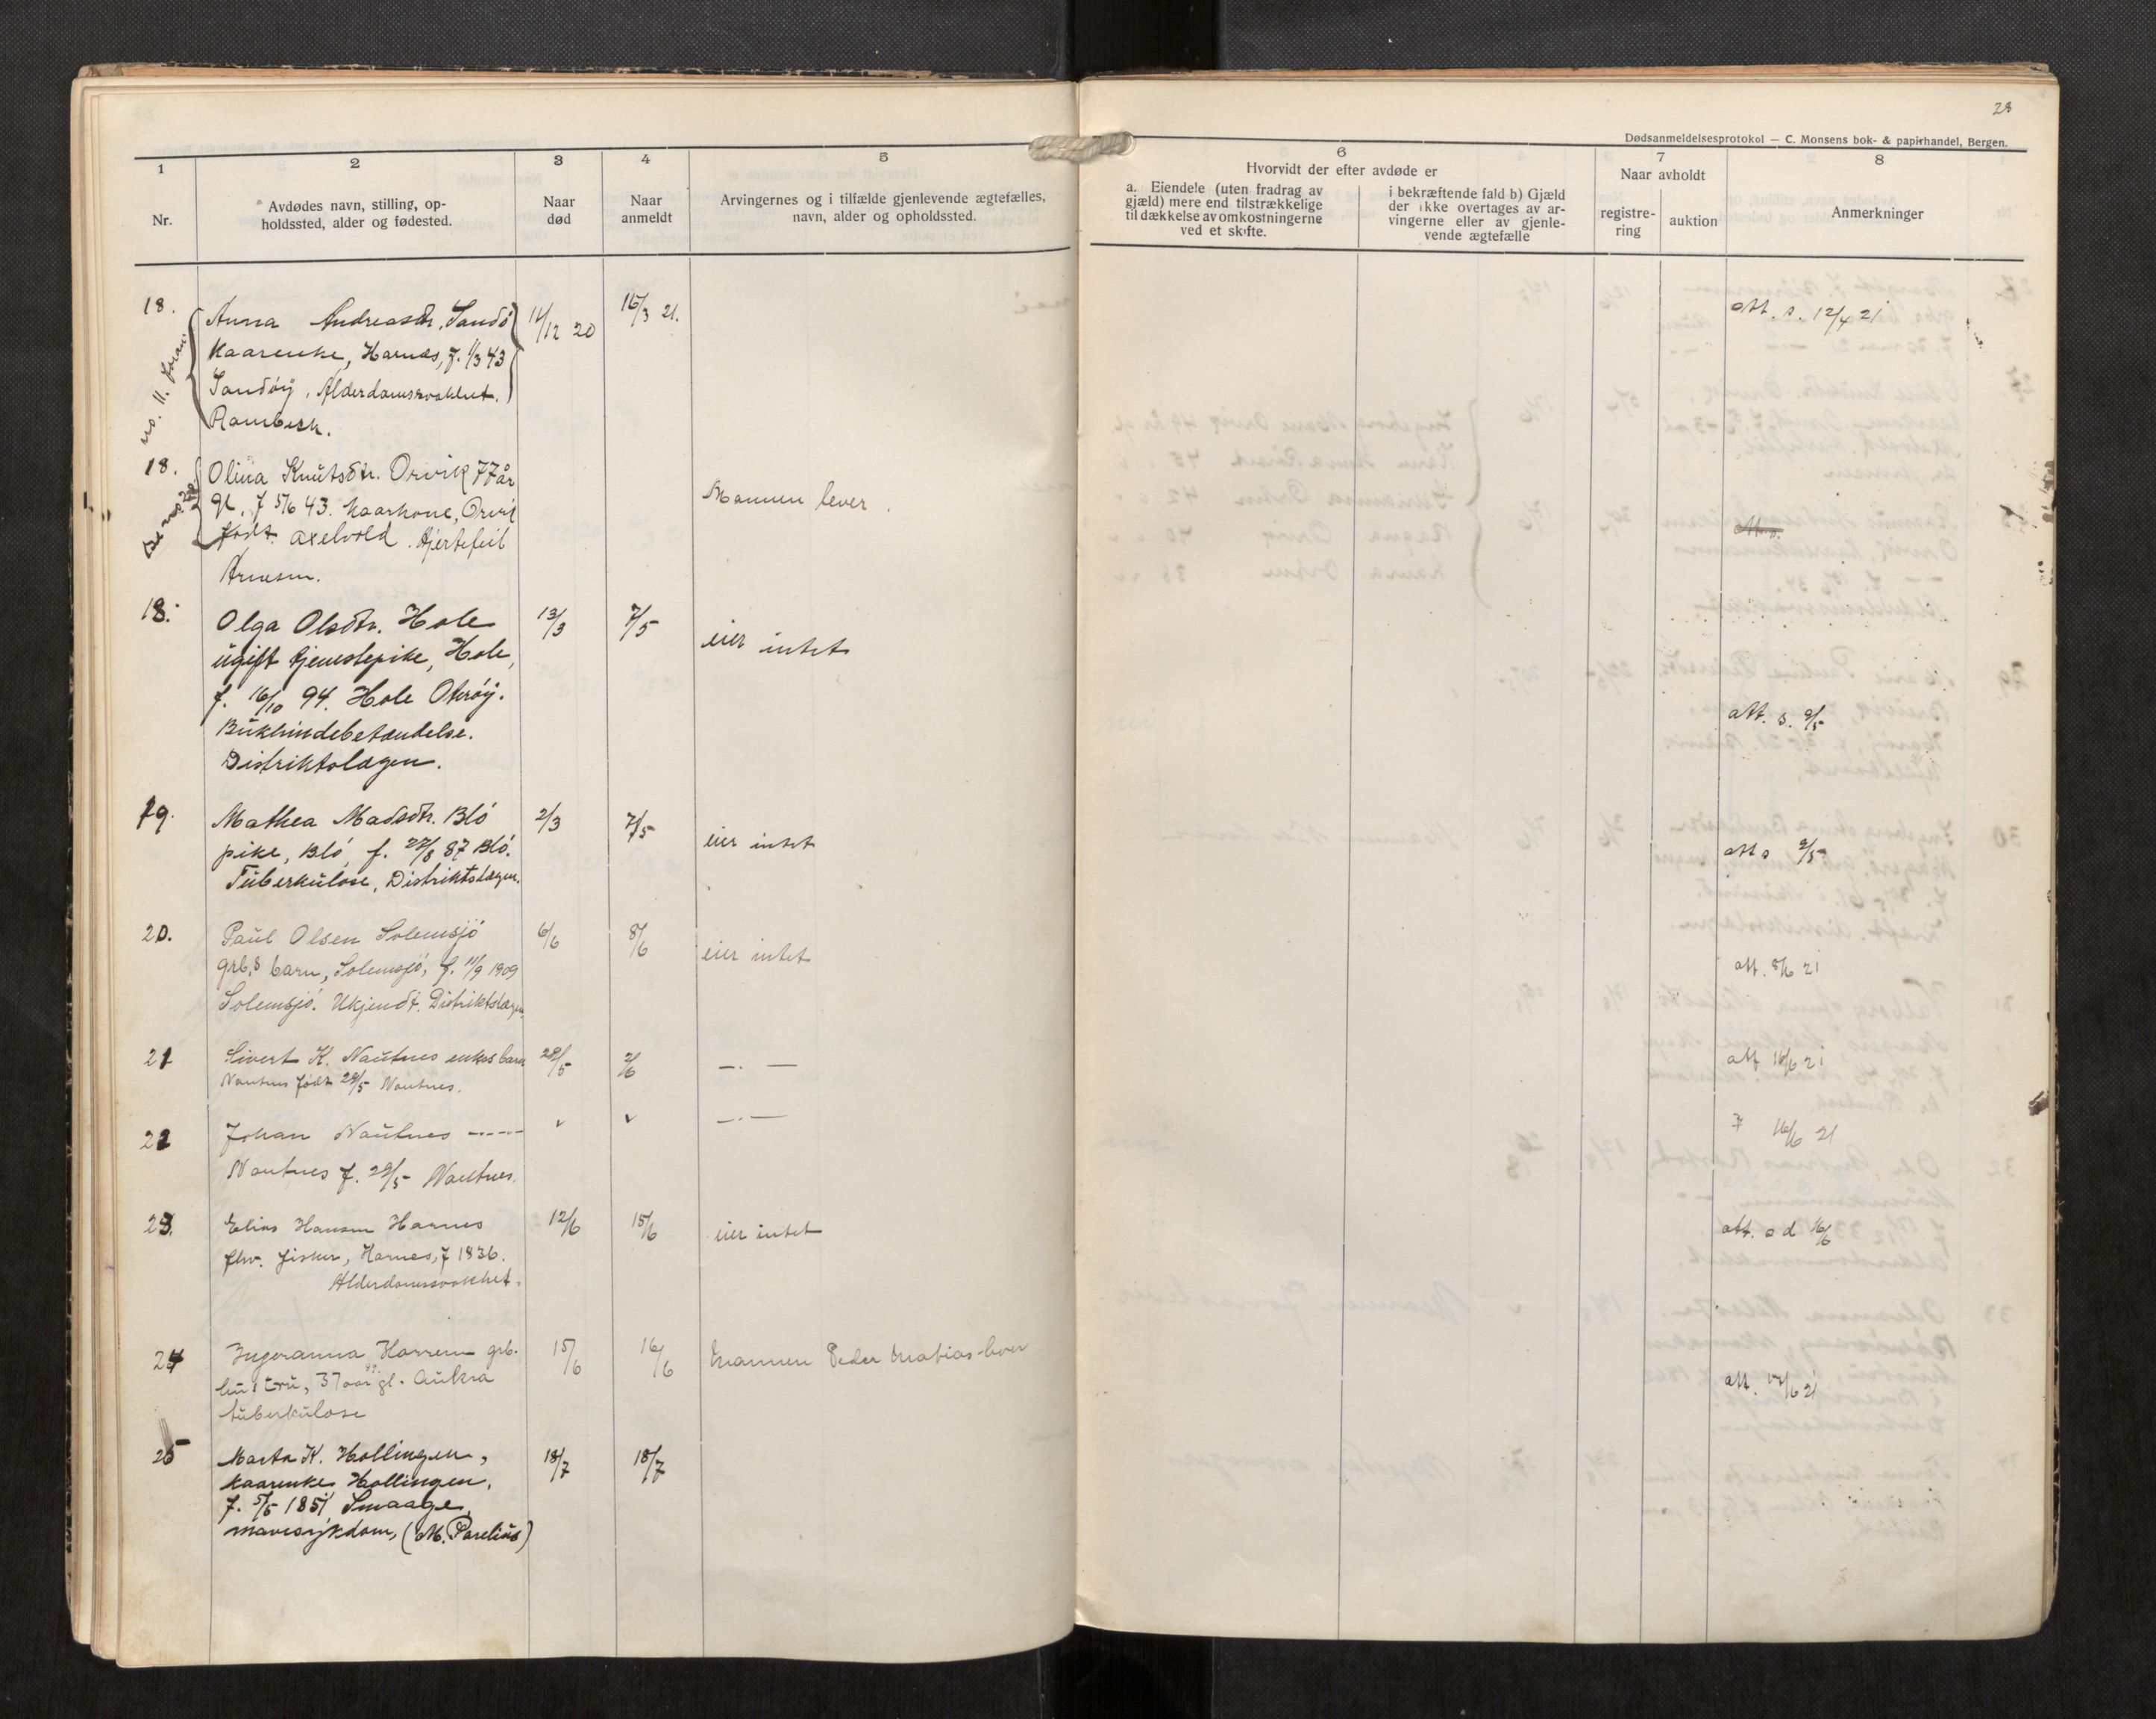 28
Dødsanmeldelsesprotokol — C. Monsens bok- & papirhandel, Bergen.
1
Nr.
2
Avdødes navn, stilling, op-
holdssted, alder og fødested.
3
Naar
død
4
Naar
anmeldt
5
Arvingernes og i tilfælde gjenlevende ægtefælles,
navn, alder og opholdssted.
6
Hvorvidt der efter avdøde er
a. Eiendele (uten fradrag av
gjæld) mere end tilstrækkelige
til dækkelse av omkostningerne
ved et skifte.
i bekræftende fald b) Gjæld
der ikke overtages av ar-
vingerne eller av gjenle-
vende ægtefælle
7
Naar avholdt
registre-
ring
auktion
8
Anmerkninger
18.
no. 11. foran
Anna Andreasdtr. Sandö
Kaarenke, Harnes, f. 1/3 43
Sandöy, Alderdomssvakhet.
Rambech.
11/12 20
16/3 21.
att. s. 12/4 21
18.
Olina Knutsdtr. Orvik 77 år
gl. f 5/6 43. kaarkone, Orvik
født. axelvold. Hjertefeil
Arnesen.
Mannen lever.
att. s.
18.
Olga Olsdtr. Hole
ugift tjenestepike, Hole,
f. 16/10 94. Hole Otröy.
Bukhindebetændelse.
Distriktslægen.
13/3
7/5
eier intet
att. s. 9/5
19.
Mathea Madsdtr. Blö
pike, Blö, f. 27/8 87 Blö.
Tuberkulose, Distriktslægen.
2/3
7/5
eier intet
att s 9/5
20.
Paul Olsen Solemsjö
grb.s barn, Solemsjö, f. 11/9 1909
Solemsjö. Ukjendt. Distriktslægen.
6/6
8/6
eier intet
att. 8/6 21
21
Sivert K. Nautnes enkes barn
Nautnes født 28/5 Nautnes.
28/5
2/6
—. —
att 16/6 21
22
Johan Nautnes -----
Nautnes f. 28/5 Nautnes.
—. —
16/6 21
23.
Elias Hansen Harnes
fhv. fisker, Harnes, f 1836.
Alderdomssvakhet.
12/6
15/6
eier intet
att. s d 16/6
24
Ingeranna Harrem grb.
hustru, 37 aar gl. Aukra
tuberkulose
15/6
16/6
Mannen Peder Matias lever
att. 17/6 21
25
Marta K. Hollingen,
kaarenke Hollingen,
f. 5/5 1851 Smaage,
mavesykdom, (M. Parelius)
18/7
18/7